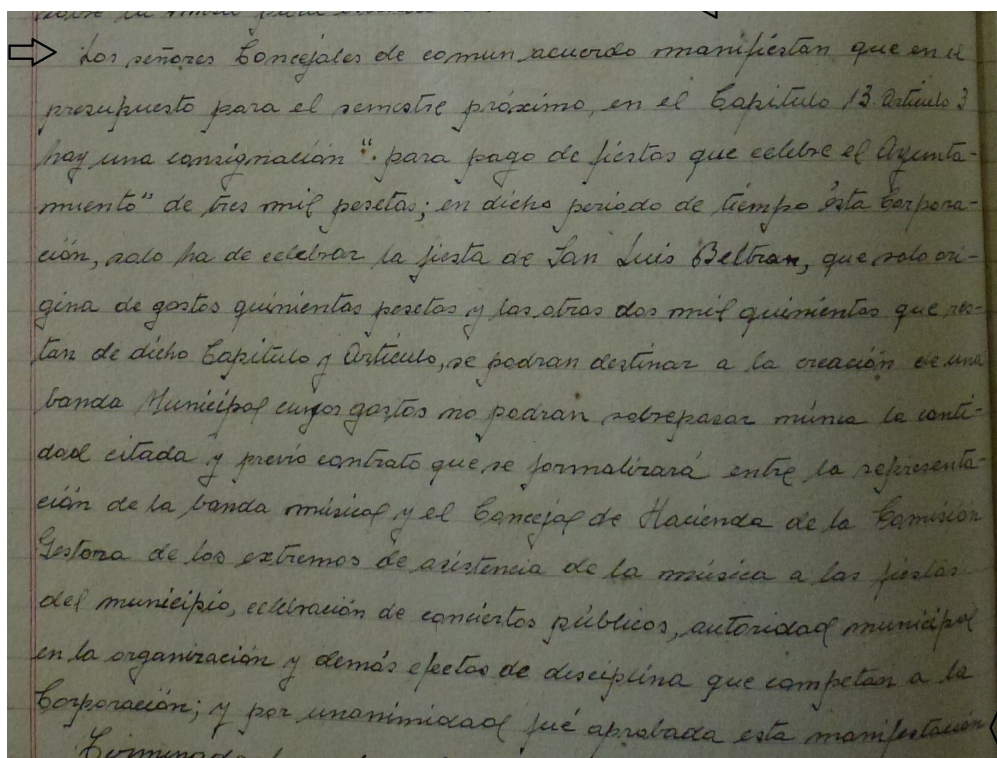 Los señores Concejales de comun acuerdo manifiestan que en el
presupuesto para el semestre próximo, en el Capitulo 13. Articulo 3
hay una consignación "para pago de fiestas que celebre el Ayunta-
miento" de tres mil pesetas; en dicho periodo de tiempo esta Corpora-
ción, solo ha de celebrar la fiesta de San Luis Beltran, que solo ori-
gina de gastos quinientas pesetas y las otras dos mil quinientas que res-
tan de dicho Capitulo y Artículo, se podran destinar a la creación de una
banda Municipal cuyos gastos no podran sobrepasar núnca la canti-
dad citada y previo contrato que se formalizará entre la representa-
ción de la banda músical y el Concejal de Hacienda de la Comisión
Gestora de los extremos de asistencia de la música a las fiestas
del municipio, celebración de conciertos públicos, autoridad municipal
en la organización y demás efectos de disciplina que competan a la
Corporación; y por unanimidad fué aprobada esta manifestación